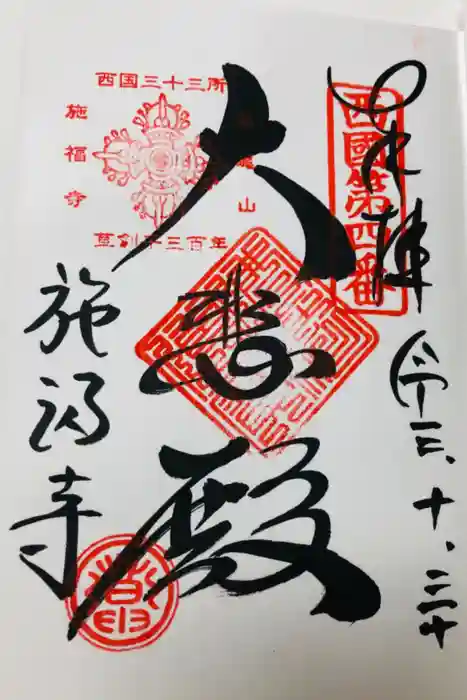 奉拝
西國第四番
令三、十、三十
西国三十三所
山
施福寺
草創千三百年
大悲殿
施福寺